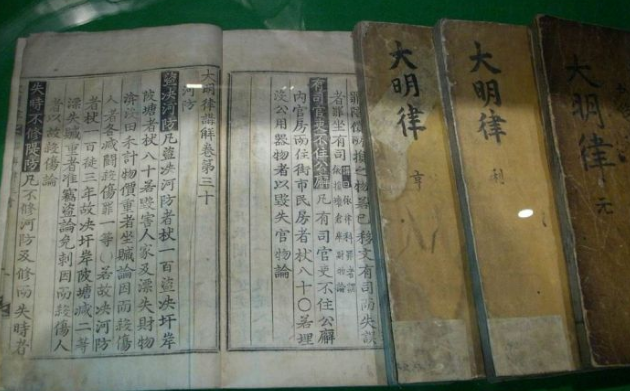 大明律 元
大明律 利
大明律
之物若已移文有司而失誤
者罪坐有司
有司官吏不住公廨 凡有司官吏不住公廨
內官房而住街市民房者杖八十○若埋
沒公用器物者以毀失官物論
大明律講解卷第三十
河防
盜決河防 凡盜決河防者杖一百盜決圩岸
陂塘者杖八十若毀害人家及漂失財物
渰沒田禾計物價重者坐贓論因而殺傷
人者各減鬪殺傷罪一等○若故決河防
者杖一百徒三年故決圩岸陂塘減二等
漂失贓重者准竊盜論免刺因而殺傷人
者以故殺傷論
失時不修隄防 凡不修河防及修而失時者